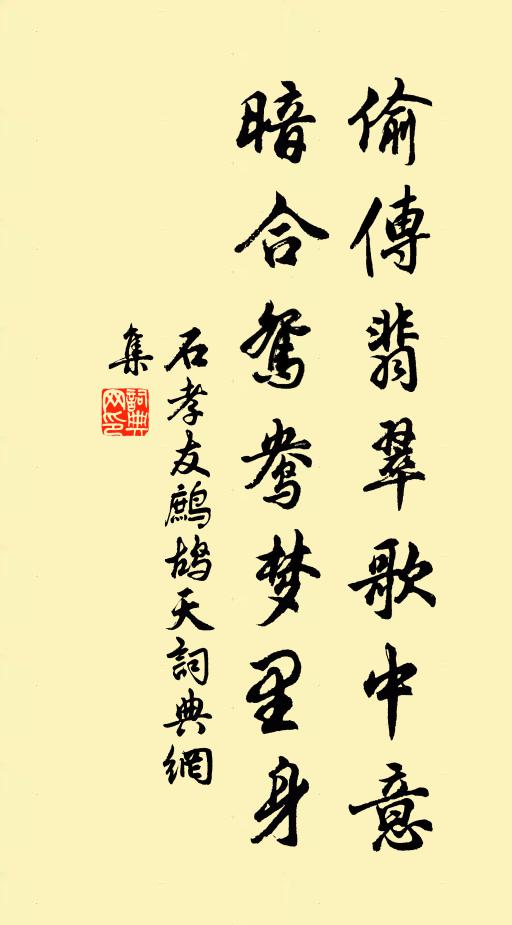 偷傳翡翠歌中意
暗合鴛鴦梦里身
石孝友鷓鴣天詞典網
集
詞典
网印